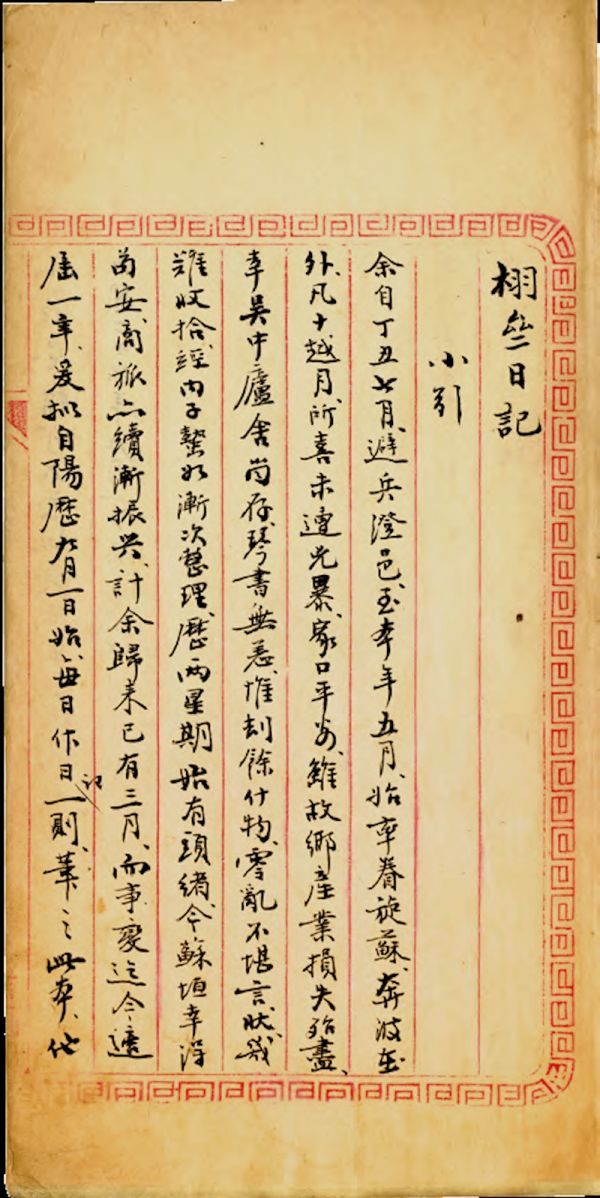 栩坌日記
小引
余自丁丑七月、避兵澄邑、至本年五月、始率眷旋蘇、奔波在
外、凡十越月、所喜未遭兇暴、家口平安、雖故鄉產業損失殆盡、
幸吳中廬舍尚存、琴書無恙、惟刦餘什物、零亂不堪言狀、幾
難收拾、經內子蟄如漸次整理、歷兩星期、始有頭緒、今蘇垣幸得
苟安、商旅亦續漸振興、計余歸來已有三月、而事變迄今、適
屆一年、爰擬自陽歷九月一日始、每日作日記一則、筆之此本、他